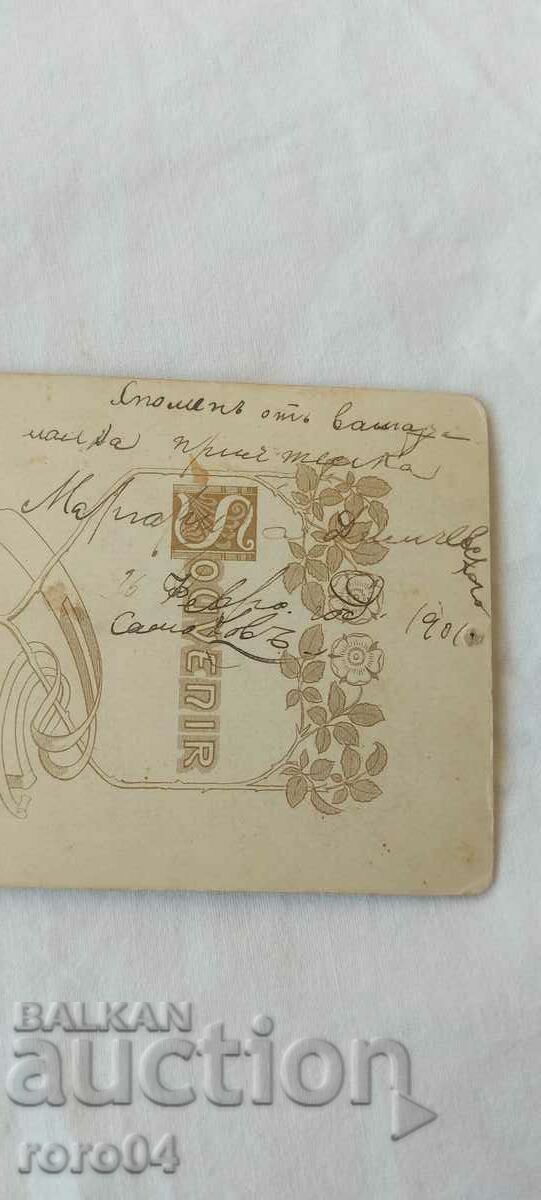 Споменъ отъ вашата
малка приятелка
Маргарита Димчевска
26 Февро. 1901
Самоковъ
SOUVENIR
BALKAN
auction
roro04